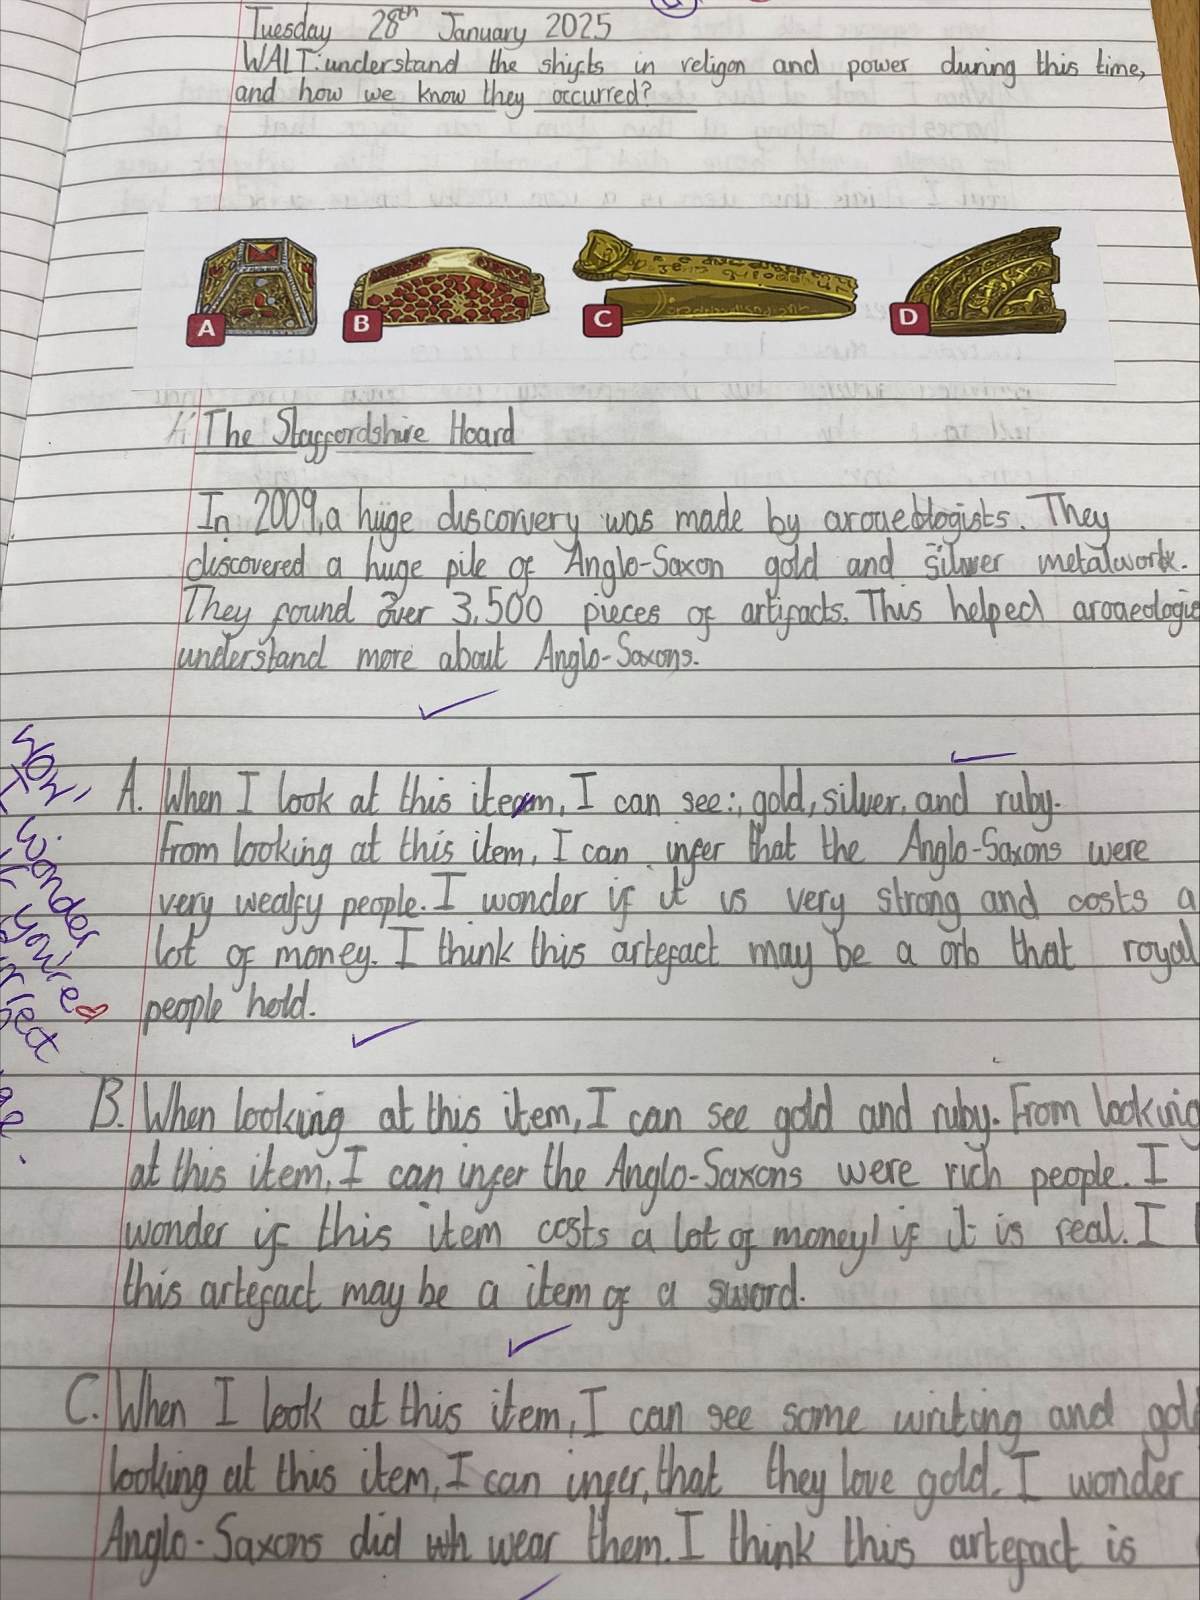 Tuesday 28th January 2025
WALT: understand the shifts in religon and power during this time,
and how we know they occurred?
A
B
C
D
The Staffordshire Hoard
In 2009, a huge discorvery was made by aroueologists. They
discovered a huge pile of Anglo-Saxon gold and silver metalwork.
They found over 3,500 pieces of artifacts. This helped
understand more about Anglo-Saxons.
Wow,
I wonder
if you're
A. When I look at this item, I can see:, gold, silver, and ruby.
From looking at this item, I can infer that the Anglo-Saxons were
very wealfy people. I wonder if it is very strong and costs a
lot of money. I think this artefact may be a orb that royal
people hold.
B. When looking at this item, I can see gold and ruby. From looking
at this item, I can infer the Anglo-Saxons were rich people. I
wonder if this item costs a lot of money/if it is real. I
this artefact may be a item of a sword.
C. When I look at this item, I can see some writing and
looking at this item, I can infer, that they love gold. I wonder
Anglo-Saxons did wear them. I think this artefact is